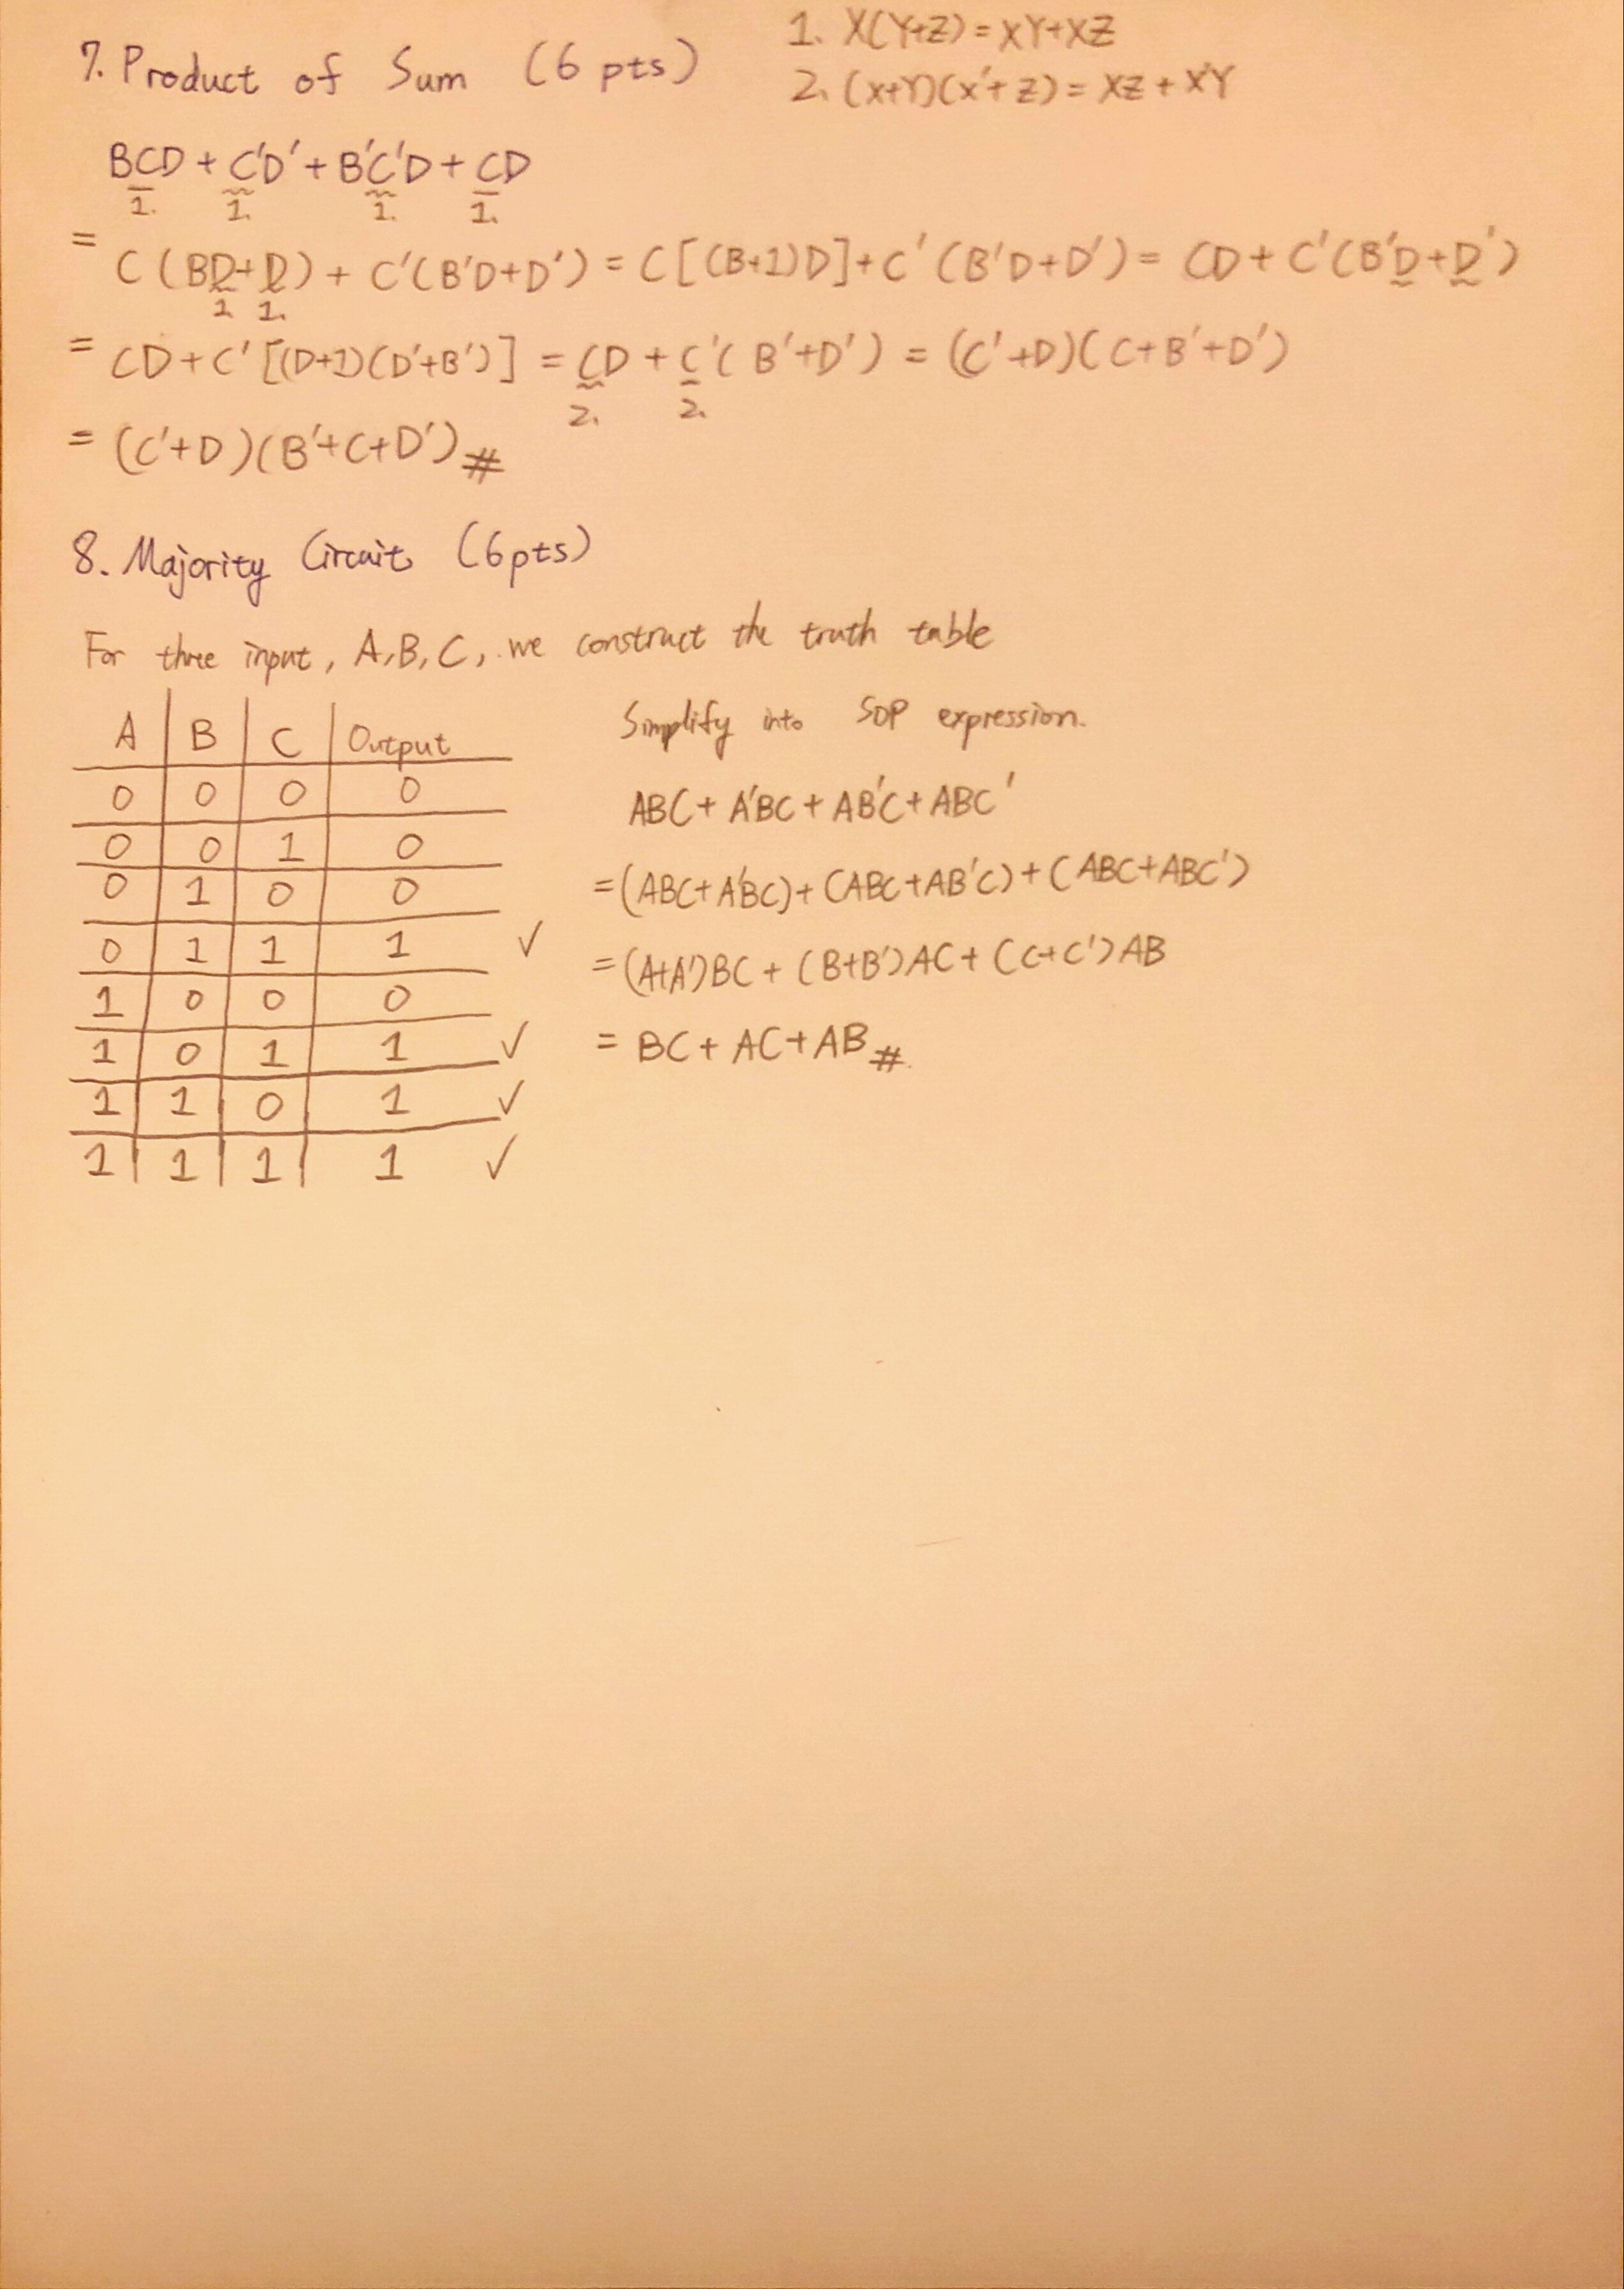 7. Product of Sum (6 pts)
1. X(Y+Z) = XY+XZ
2. (X+Y)(X'+Z) = XZ + X'Y
BCD + C'D' + B'C'D + CD
1. 1. 1. 1.
= C (BD+D) + C'(B'D+D') = C[(B+1)D]+C'(B'D+D') = CD + C'(B'D+D')
1 1.
= CD+C'[(D+1)(D'+B')] = CD + C'(B'+D') = (C'+D)(C+B'+D')
2. 2.
= (C'+D)(B'+C+D') #
8. Majority Circuit (6pts)
For three input, A,B,C, we construct the truth table
A B C Output
0 0 0 0
0 0 1 0
0 1 0 0
0 1 1 1 ✓
1 0 0 0
1 0 1 1 ✓
1 1 0 1 ✓
1 1 1 1 ✓
Simplify into SOP expression.
ABC+ A'BC + AB'C+ABC'
=(ABC+A'BC)+(ABC+AB'C)+(ABC+ABC')
=(A+A')BC + (B+B')AC+(C+C')AB
= BC+ AC+AB #